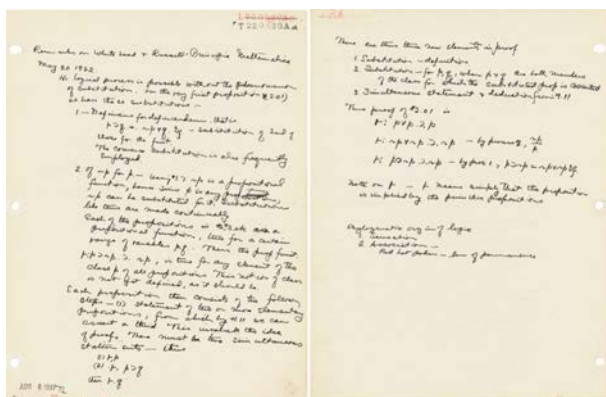 T220520Aa
Remarks on Whitehead & Russell's Principia Mathematica
May 20 1922
No logical process is possible without the phenomenon
of substitution. In the very first proposition (*2.01)
we have the two substitutions —
1 — Definiens for definiendum, that is
p⊃q . = . ~p∨q Df — substitution of 2nd of
these for the first
The converse substitution is also frequently
employed
2. Of ~p for p —
function, hence since p is any
~p can be substituted for it. Substitutions
like this are made continually
Each of the propositions in
propositional function, true for a certain
range of variables p, q. Thus the prop first,
⊢: p⊃~p . ⊃ . ~p, is true for any element of the
class p of all propositions. This notion of class
is not yet defined, as it should be.
Each proposition then consists of the following
steps — (1) statement of two or more elementary
propositions, from which by *1.11 we can
assert a third. This unveils the idea
of proof. There must be two simultaneous
statements — thus
(1) ⊢. p
(2) ⊢. p⊃q
then ⊢. q
AUG 8 1972
There are thus three new elements in proof
1. Substitution — definition
2. Substitution — for p, q, when p & q are both members
of the class for which the substituted prop is asserted
3. Simultaneous statement & deduction from *1.11
Thus proof of *2.01 is
⊢: p∨p . ⊃ . p
⊢: ~p∨~p . ⊃ . ~p — by process 2, ~p/p
⊢: p⊃~p . ⊃ . ~p — by proc 1, p⊃~p = ~p∨~p Df
Note on ⊢ — ⊢ means simply that the proposition
is implied by the primitive propositions
Phylogenetic origin of logic
1 Sensation
2 Association —
Red hot poker — law of permanence